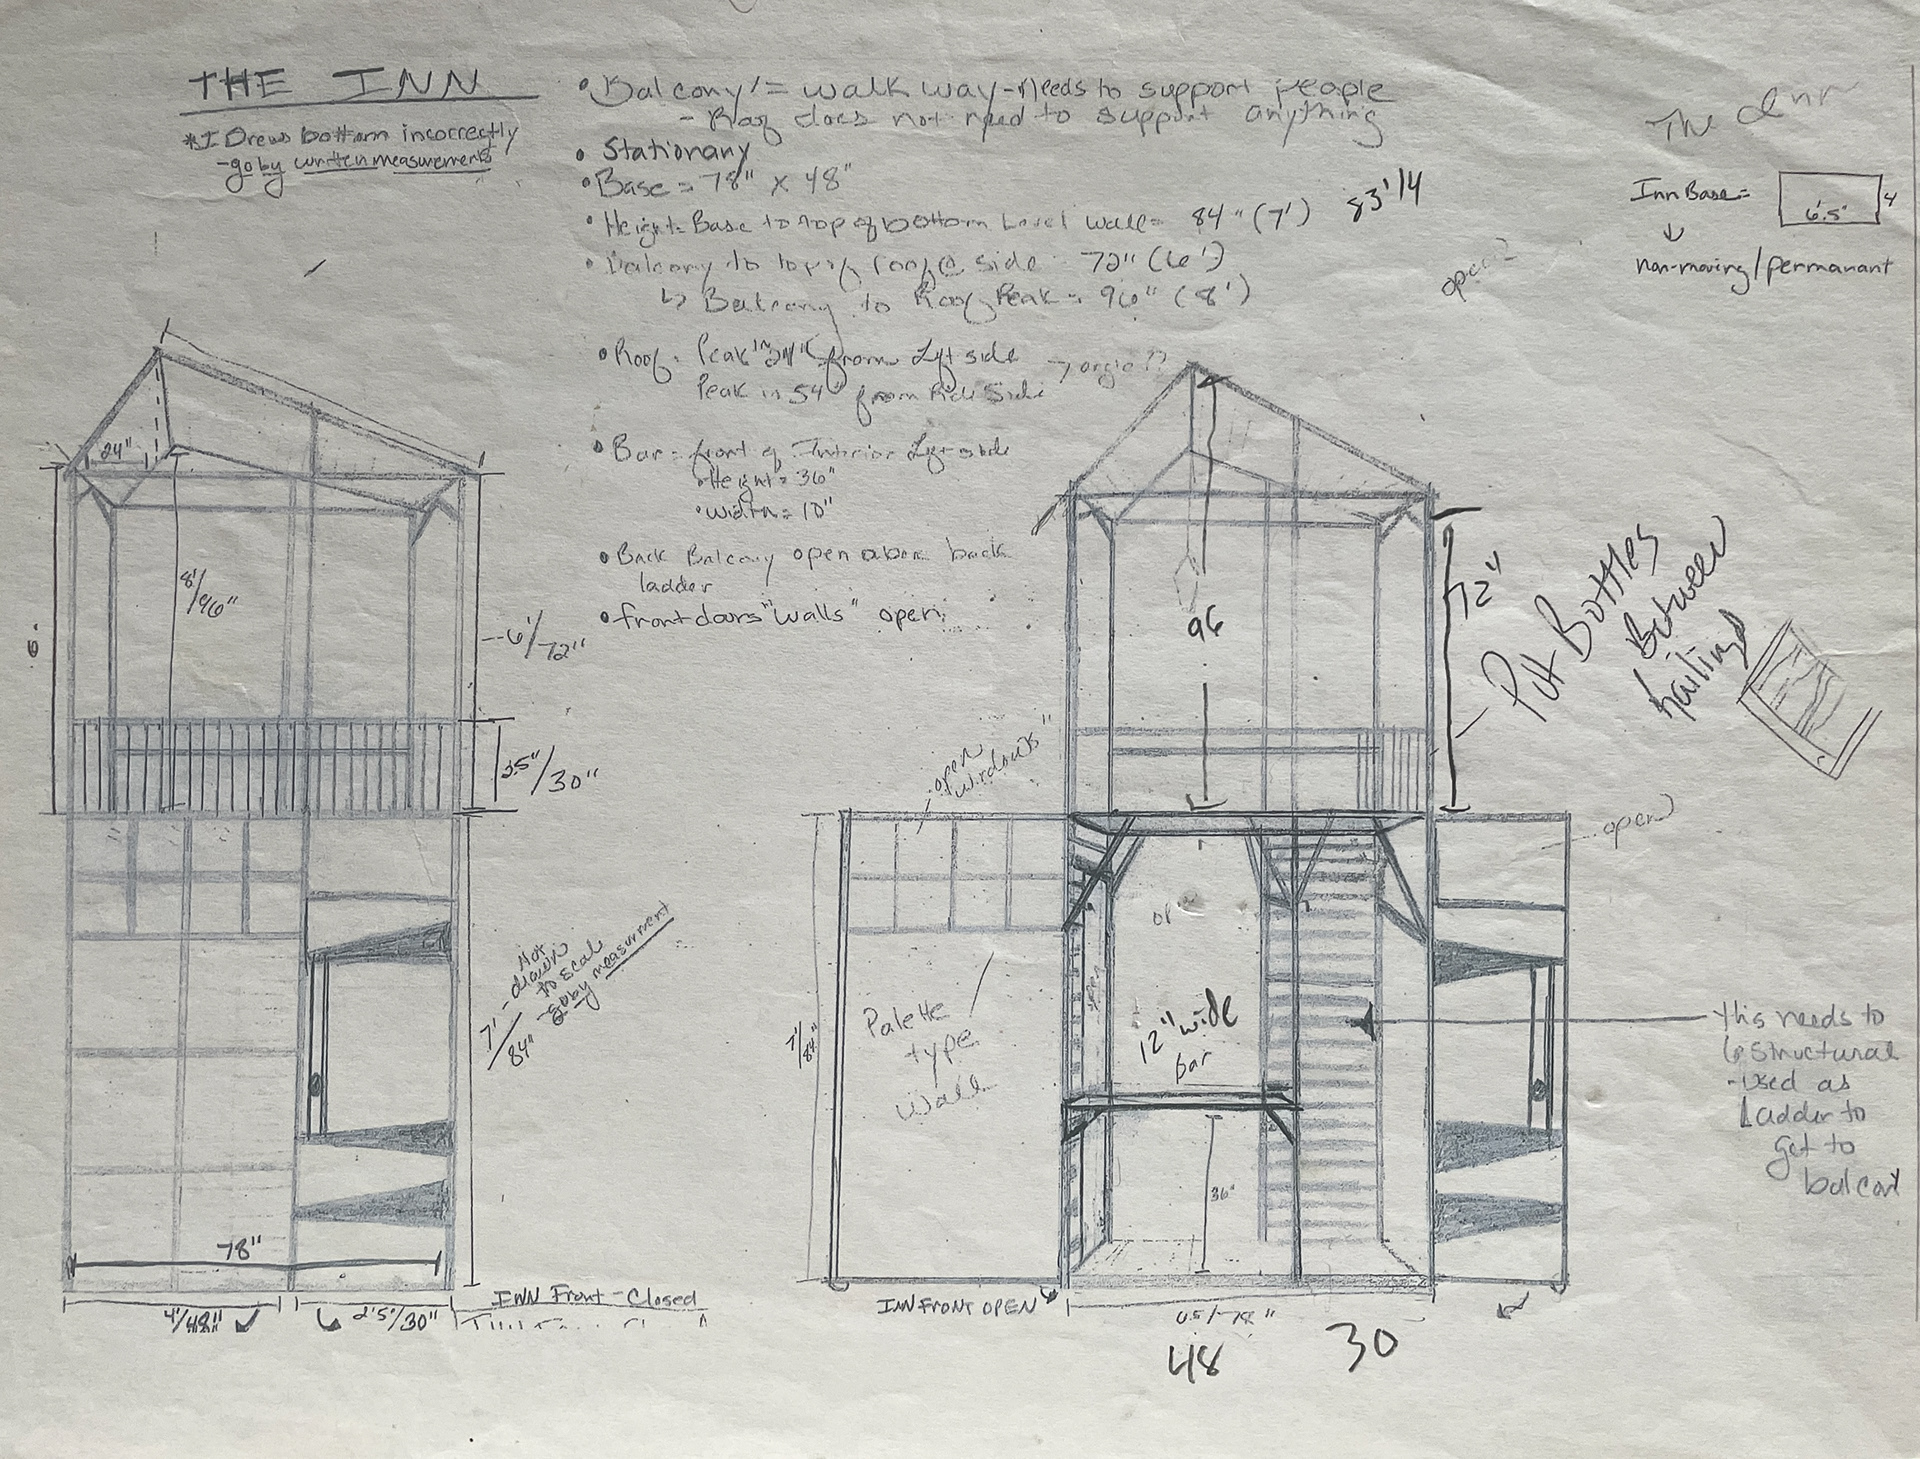 THE INN
*I Drew bottom incorrectly
-go by written measurements
• Balcony = walk way - needs to support people
- Roof does not need to support anything
• Stationary
• Base = 78" x 48"
• Height = Base to top of bottom Level wall = 84" (7')
83 1/4
• Balcony to top of roof @ side - 72" (6')
↳ Balcony to Roof Peak = 96" (8')
• Roof - Peak in 24" from Left side
Peak in 54" from Side
→ angle??
• Bar = front of Interior Left side
• Height = 36"
• width = 10"
• Back Balcony open above back
ladder
• front doors "walls" open
The Inn
Inn Base =
6.5'
4
↓
non-moving/permanant
open?
24"
8'/96"
6'
-6'/72"
2.5"/30"
Not
drawn
to scale
-go by measurment
7'/84"
78"
4'/48"
2'5"/30"
INN Front - Closed
96
72"
Put Bottles
Between
open
windows"
open
7'/84"
Palette
type
wall
open
open
12" wide
bar
36"
this needs to
be structural
-used as
Ladder to
get to
INN FRONT OPEN
6.5'/78"
48
30